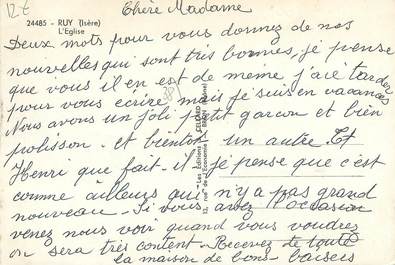 12€
Chère Madame
24485 - RUY (Isère)
L'Eglise
Deux mots pour vous donnez de nos
nouvelles qui sont très bonnes, je pense
que vous il en est de meme j'aie tarder
pour vous ecrire mais je suis en vacances
Nous avons un joli petit garcon et bien
polisson. et bientot un autre. Et
Henri que fait-il je pense que c'est
comme ailleurs qui n'y a pas grand
nouveau. Si vous avez l'occasion
venez nous voir quand vous voudrez
on sera très content. Recevez de toute
la maison de bons baisers
38
"Les Editions CELLARD"
12, rue de l'Economie - BRON (Rhône)